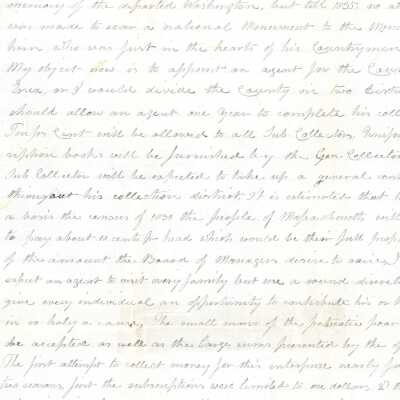 memory of the departed Washington, but till 1835 no at
was made to rear a national Monument to the Mem
him who was first in the hearts of his Countrymen
My object now is to appoint an agent for the Coun
Area, or I would divide the County in two Distr
should allow an agent one Year to complete his coll
Ten pr Cent will be allowed to all Sub Collectors, Unifor
ription books will be furnished by the Gen. Collector
Sub Collector will be expected to take up a general con
throughout his collection district. It is estimated that t
a basis the census of 1830 the people of Massachusetts will
to pay about 10 cents pr head which would be their full prop
of this amount the Board of Managers desire to raise, I
expect an agent to visit every family but use a sound discreti
give every individual an opportunity to contribute his or h
in so holy a cause, The small means of the patriotic poor
be accepted as well as the large sums presented by the of
The first attempt to collect money for this enterprise nearly fo
two reasons, first the subscriptions were limited to one dollar, & th